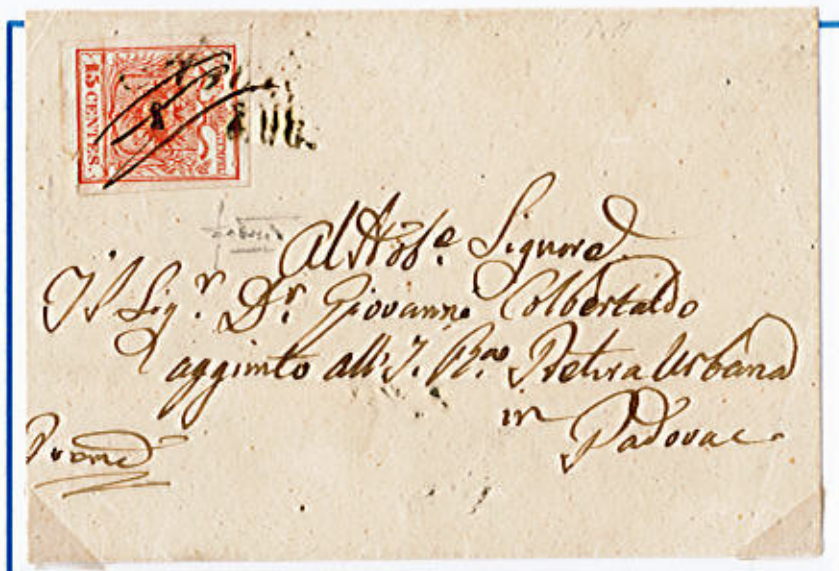 15 CENTES.
AUG.
Al Nob.e Signore
Il Sig.r D.r Giovanni Colbertaldo
aggiunto all' I. R. Pretura Urbana
in
Padova